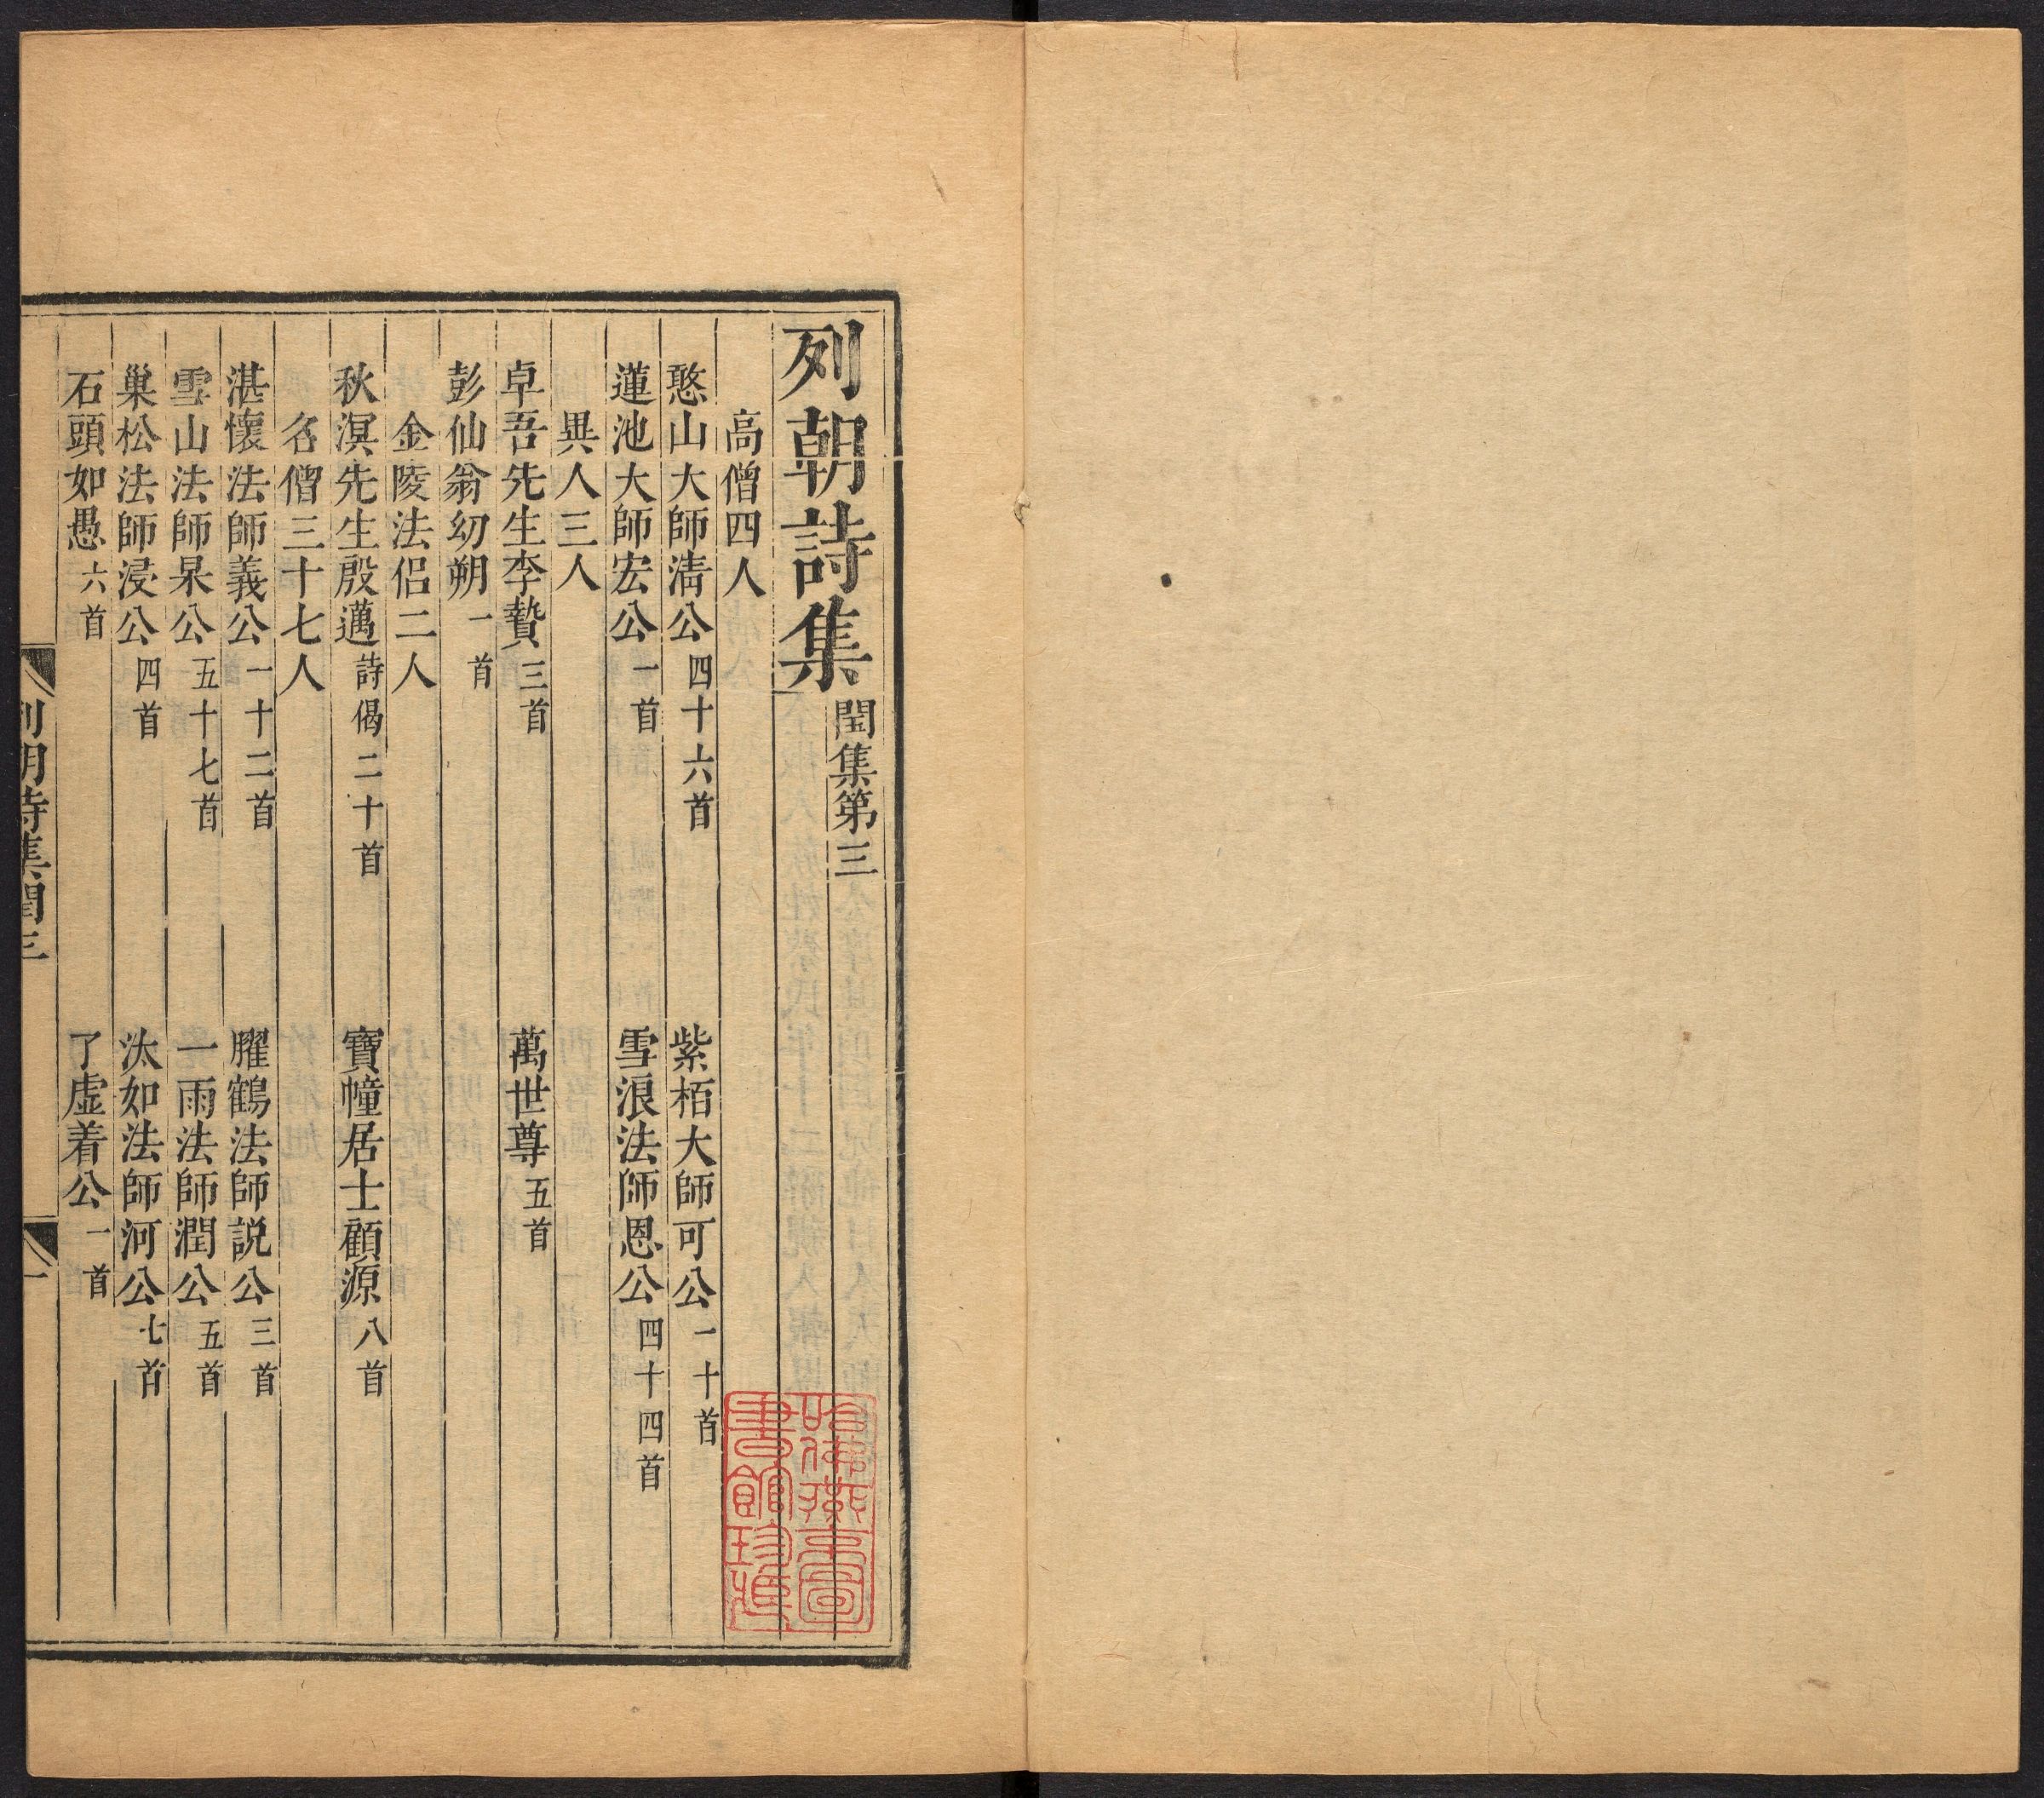 列朝詩集 閏集第三
高僧四人
憨山大師清公 四十六首 紫栢大師可公 一十首
蓮池大師宏公 一首 雪浪法師恩公 四十四首
異人三人
卓吾先生李贄 三首 萬世尊 五首
彭仙翁幼朔 一首
金陵法侣二人
秋溟先生殷邁 詩偈二十首 寶幢居士顧源 八首
名僧三十七人
湛懷法師義公 一十二首 臞鶴法師説公 三首
雪山法師杲公 五十七首 一雨法師潤公 五首
巢松法師浸公 四首 汰如法師河公 七首
石頭如愚 六首 了虚着公 一首
列朝詩集閏三 一
哈佛燕京圖書館珍藏